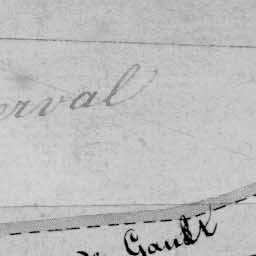 erval
Gault